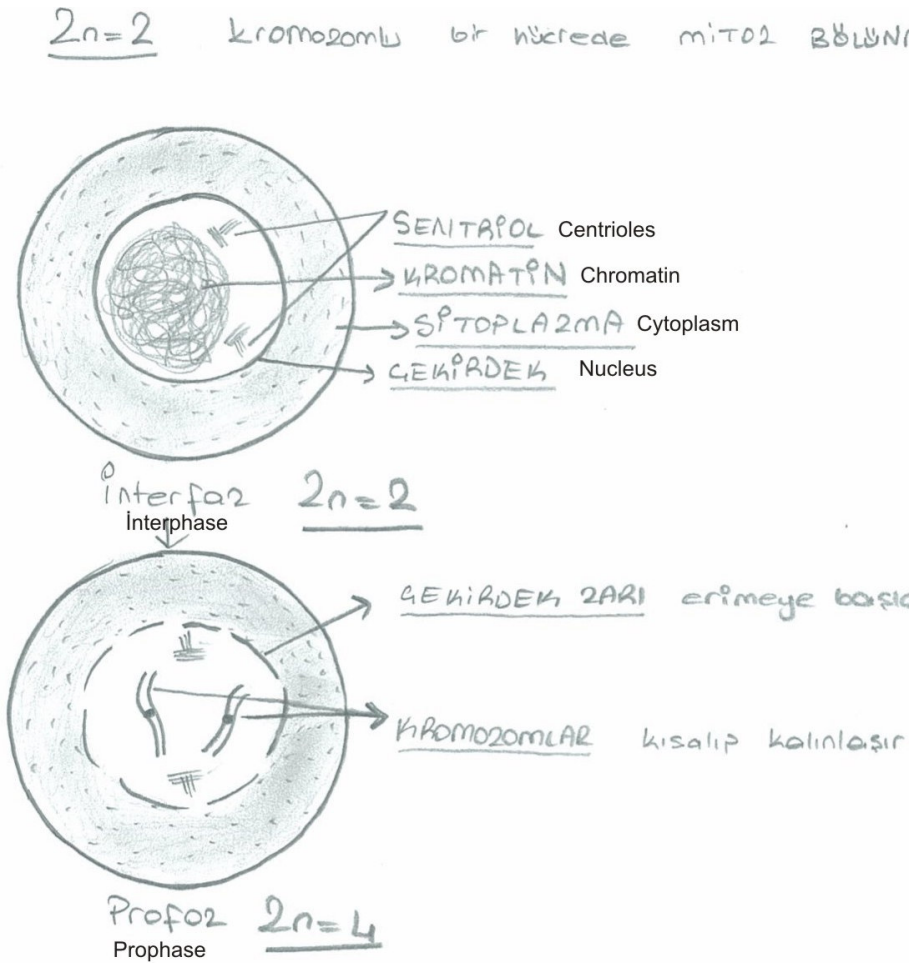 2n=2 kromozomlu bir hücrede MİTOZ
SENİTRİOL Centrioles
KROMATİN Chromatin
SİTOPLAZMA Cytoplasm
ÇEKİRDEK Nucleus
İnterfaz 2n=2
İnterphase
ÇEKİRDEK ZARI erimeye
KROMOZOMLAR kısalıp kalınlaşır
Profoz 2n=4
Prophase